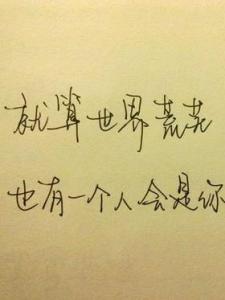 就算世界荒芜
也有一个人会是你